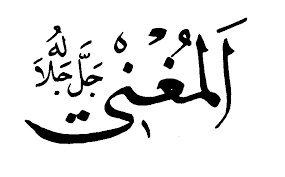 اَلْمُغْنِي جَلَّ جَلَالُهُ